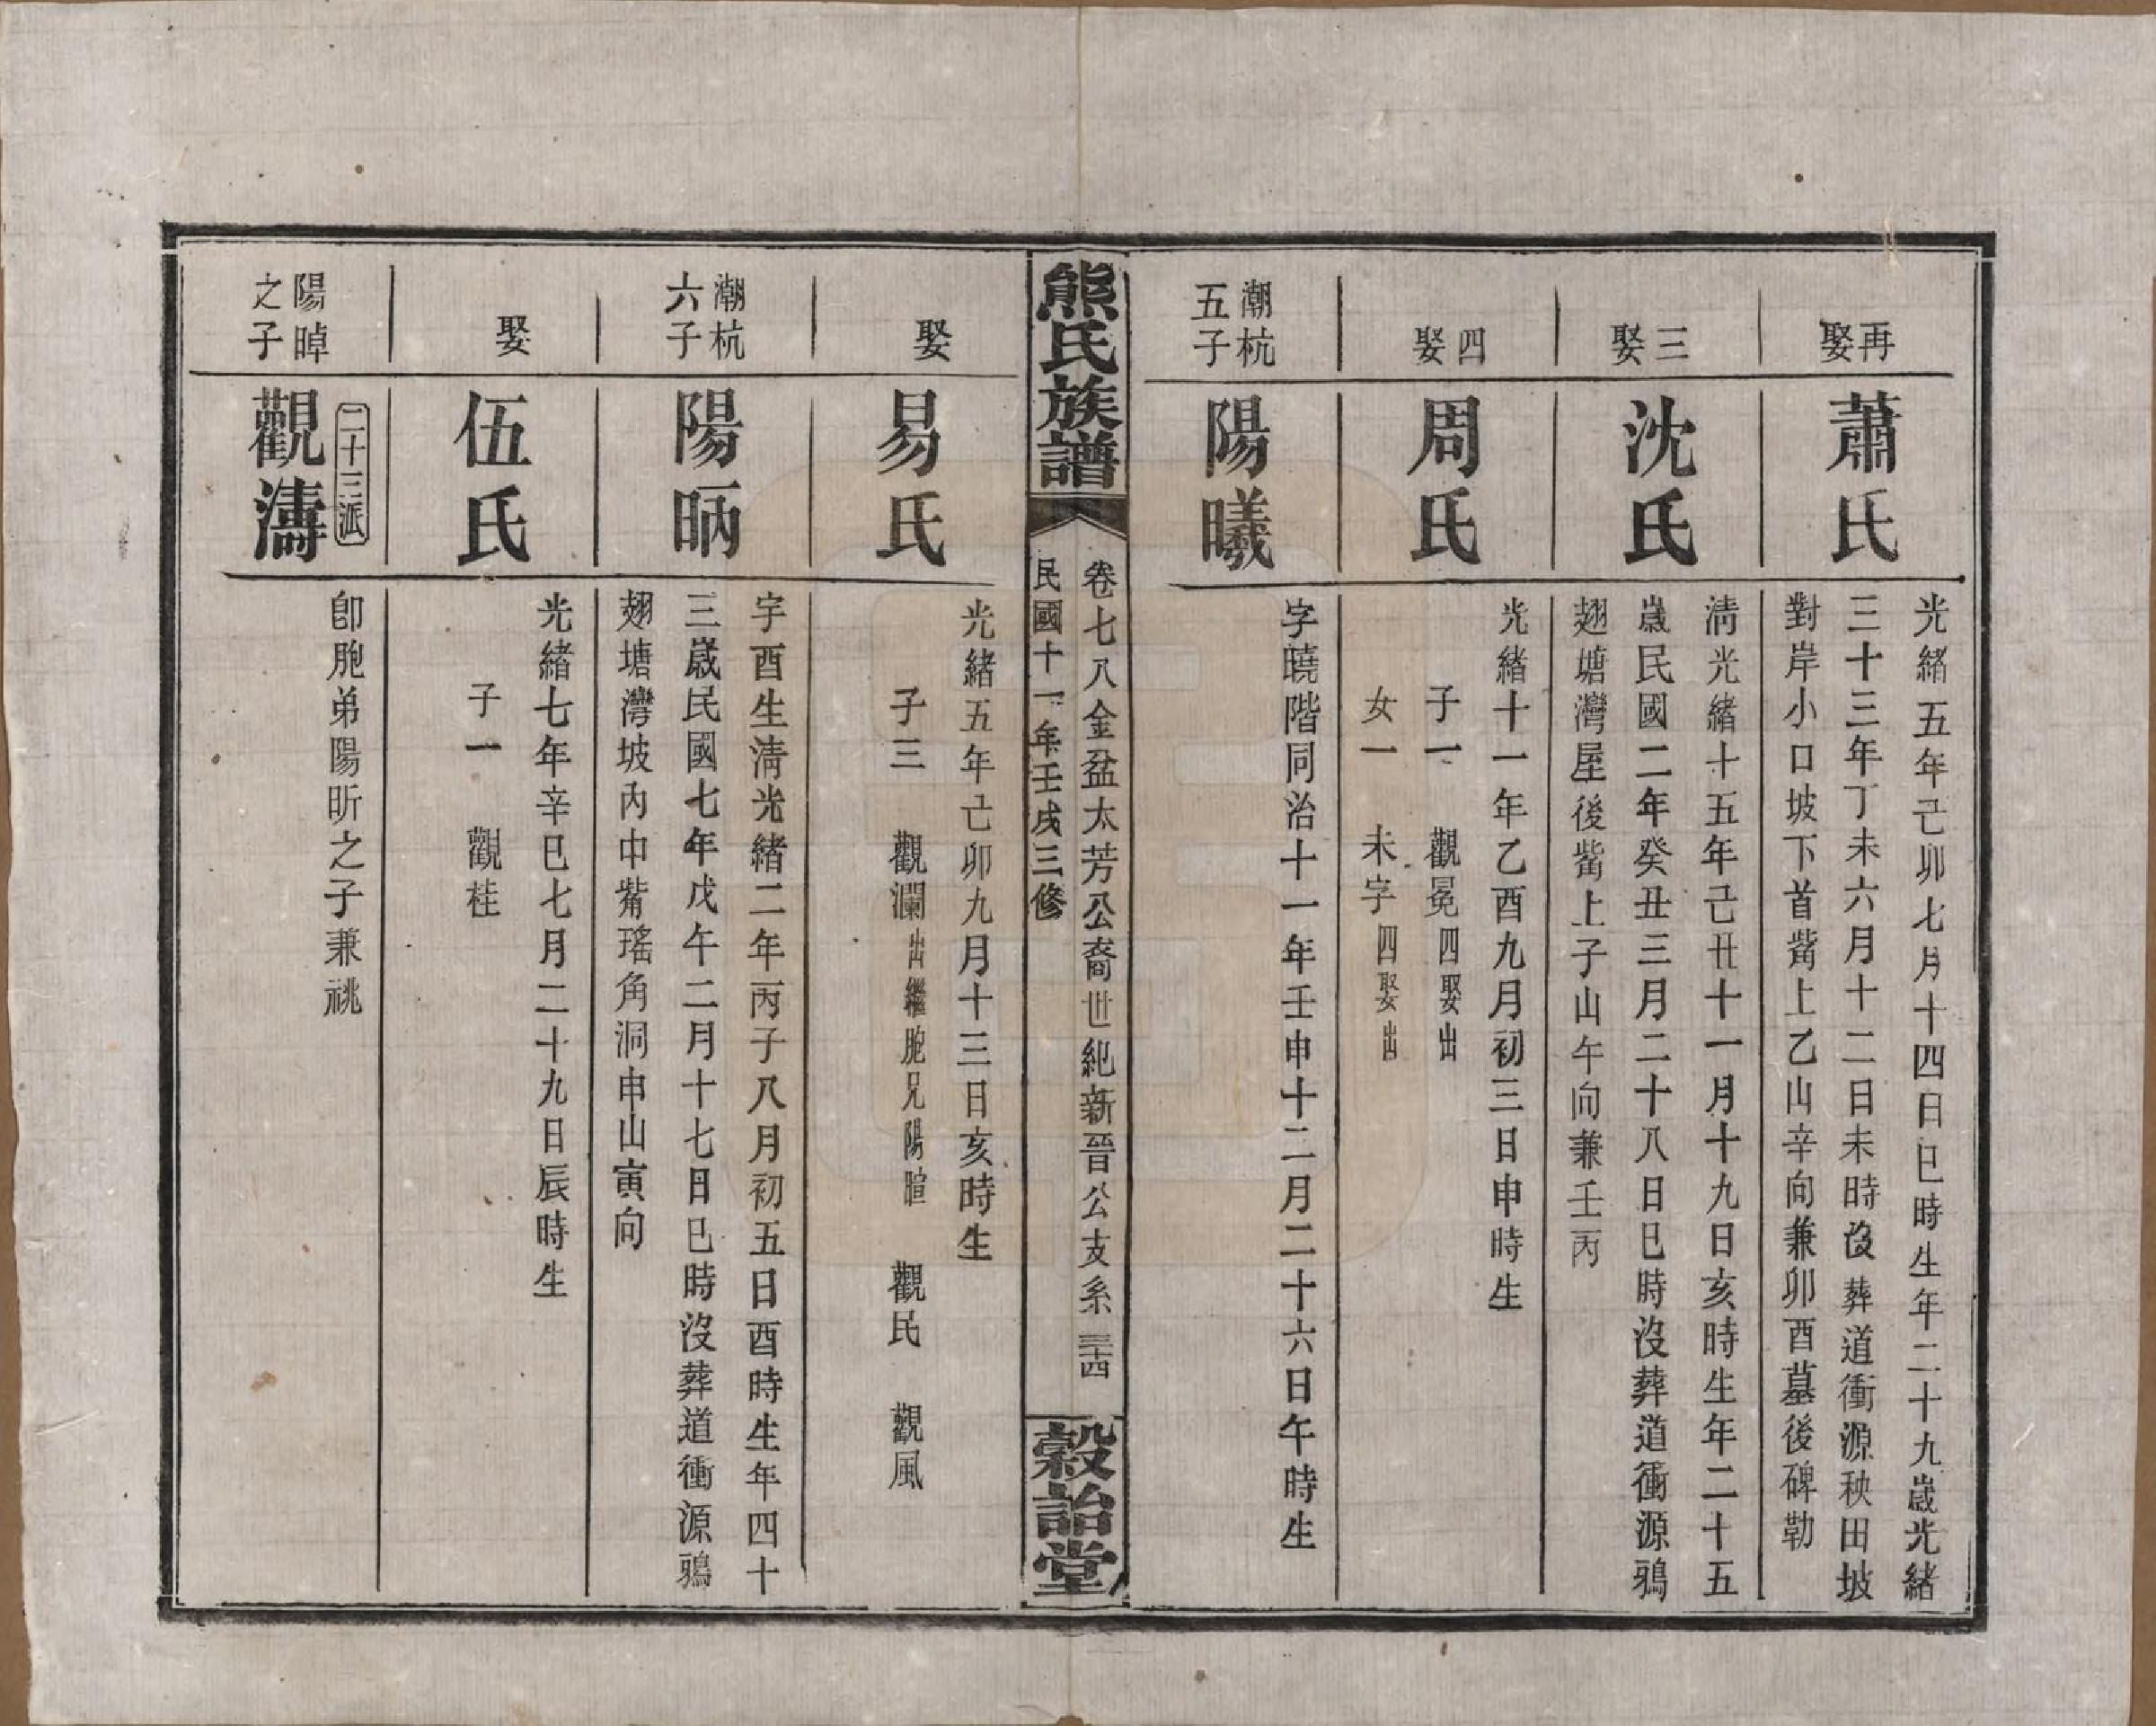 再娶
蕭氏
光緒五年己卯七月十四日巳時生年二十九歲光緒
三十三年丁未六月十二日未時沒葬道衝源秧田坡
對岸小口坡下首觜上乙山辛向兼卯酉墓後碑勒
三娶
沈氏
清光緒十五年己丑十一月十九日亥時生年二十五
歲民國二年癸丑三月二十八日巳時沒葬道衝源鴉
翅塘灣屋後觜上子山午向兼壬丙
四娶
周氏
光緒十一年乙酉九月初三日申時生
子一 觀冕四娶出
女一 未字四娶出
潮杭五子
陽曦
字曉階同治十一年壬申十二月二十六日午時生
熊氏族譜
卷七八金盆太芳公裔世紀新晉公支系 三十四
民國十一年壬戌三修
穀詒堂
娶
易氏
光緒五年己卯九月十三日亥時生
子三 觀瀾出繼胞兄陽暄 觀民 觀風
潮杭六子
陽昞
字酉生清光緒二年丙子八月初五日酉時生年四十
三歲民國七年戊午二月十七日巳時沒葬道衝源鴉
翅塘灣坡內中觜瑤角洞申山寅向
娶
伍氏
光緒七年辛巳七月二十九日辰時生
子一 觀桂
二十三派
陽晫之子
觀濤
卽胞弟陽昕之子兼祧